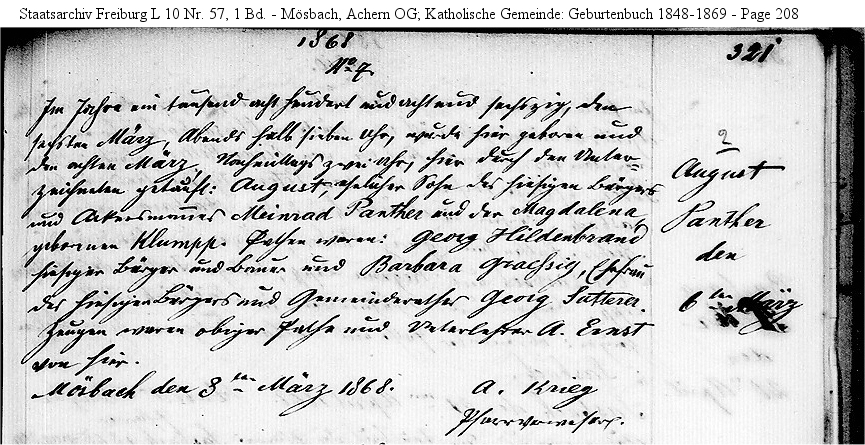 Staatsarchiv Freiburg L 10 Nr. 57, 1 Bd. - Mösbach, Achern OG; Katholische Gemeinde: Geburtenbuch 1848-1869 - Page 208
1868
321
No 7.
Im Jahre ein tausend acht hundert und acht und sechszig, den
sechsten März, Abends halb sieben Uhr, wurde hier geboren und
den achten März, Nachmittags zwei Uhr, hier durch den Unter-
zeichneten getauft: August, ehelicher Sohn des hiesigen Bürgers
und Ackersmannes Meinrad Panther und der Magdalena,
gebornen Klumpp. Pathen waren: Georg Hildenbrand
hiesiger Bürger und Bauer und Barbara Graessig, Ehefrau
des hiesigen Bürgers und Gemeinderathes Georg Sutterer.
Zeugen waren obiger Pathe und Unterlehrer A. Ernst
von hier.
Mösbach den 8ten März 1868.
A. Krieg
Pfarrverweser.
2
August
Panther
den
6ten März